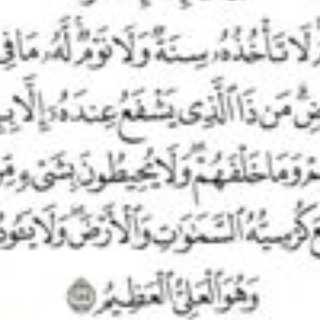 لَا تَأْخُذُهُۥ سِنَةٌ وَلَا نَوْمٌ ۚ لَّهُۥ مَا فِي
مَن ذَا ٱلَّذِي يَشْفَعُ عِندَهُۥٓ إِلَّا
وَمَا خَلْفَهُمْ ۖ وَلَا يُحِيطُونَ بِشَيْءٍ
كُرْسِيُّهُ ٱلسَّمَٰوَٰتِ وَٱلْأَرْضَ ۖ وَلَا
وَهُوَ ٱلْعَلِيُّ ٱلْعَظِيمُ